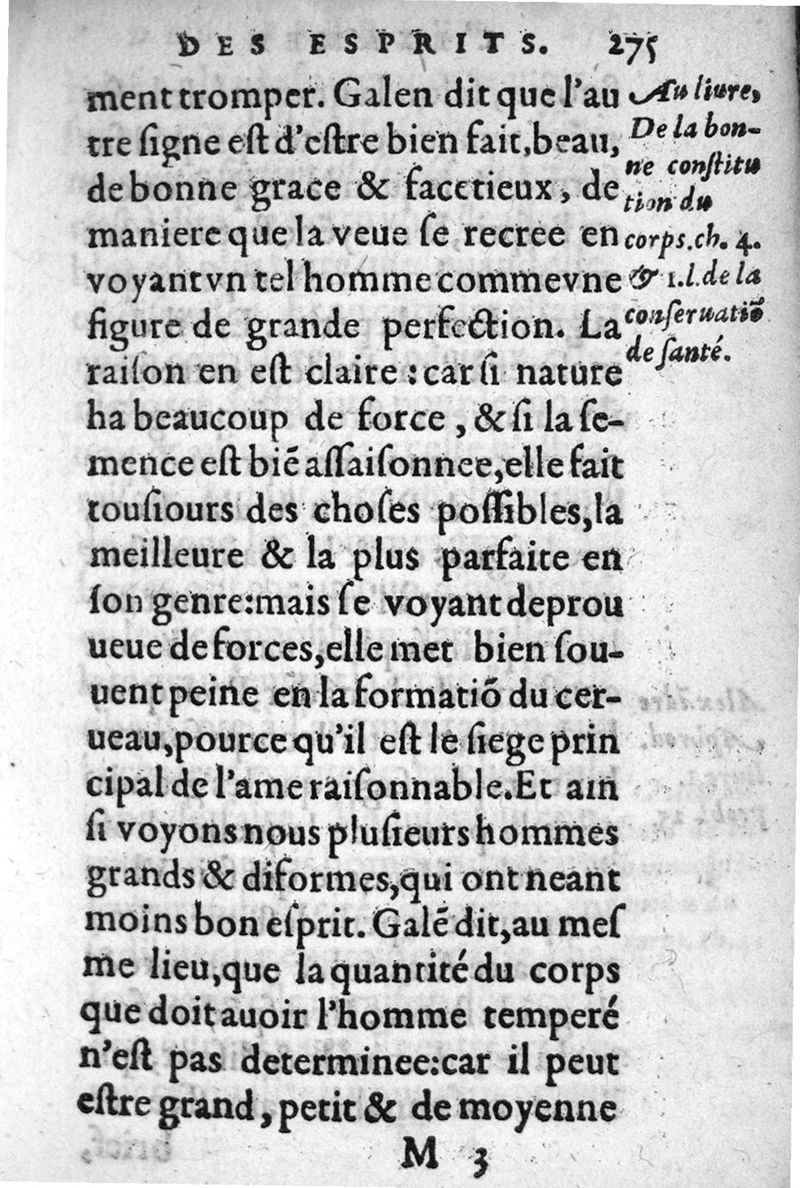 DES ESPRITS. 275
ment tromper. Galen dit que l'au
tre ſigne eſt d'eſtre bien fait, beau,
de bonne grace & facetieux, de
maniere que la veue ſe recree en
voyant vn tel homme comme vne
figure de grande perfection. La
raiſon en eſt claire : car ſi nature
ha beaucoup de force, & ſi la ſe-
mence eſt biē aſſaiſonnee, elle fait
touſiours des choſes poſſibles, la
meilleure & la plus parfaite en
ſon genre: mais ſe voyant deprou
ueue de forces, elle met bien ſou-
uent peine en la formatiō du cer-
ueau, pource qu'il eſt le ſiege prin
cipal de l'ame raiſonnable. Et ain
ſi voyons nous pluſieurs hommes
grands & diformes, qui ont neant
moins bon eſprit. Galē dit, au meſ
me lieu, que la quantité du corps
que doit auoir l'homme temperé
n'eſt pas determinee: car il peut
eſtre grand, petit & de moyenne
M 3
Au liure,
De la bon-
ne conſtitu
tion du
corps. ch. 4.
& 1. l. de la
conſeruatiō
de ſanté.